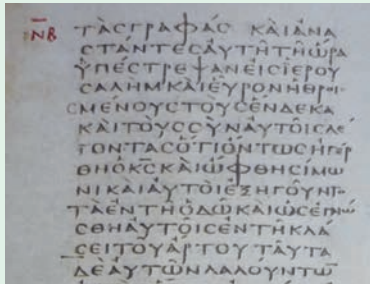 Ν̅Β ΤΑϹΓΡΑΦΑϹ ΚΑΙΑΝΑ
ϹΤΑΝΤΕϹΑΥΤΗΤΗΩΡΑ
ΥΠΕϹΤΡΕΨΑΝΕΙϹΙΕΡΟΥ
ϹΑΛΗΜΚΑΙΕΥΡΟΝΗΘΡΟΙ
ϹΜΕΝΟΥϹΤΟΥϹΕΝΔΕΚΑ
ΚΑΙΤΟΥϹϹΥΝΑΥΤΟΙϹΛΕ
ΓΟΝΤΑϹΟΤΙΟΝΤΩϹΗΓΕΡ
ΘΗΟΚ̅Ϲ̅ΚΑΙΩΦΘΗϹΙΜΩ
ΝΙΚΑΙΑΥΤΟΙΕΞΗΓΟΥΝΤΟ
ΤΑΕΝΤΗΟΔΩΚΑΙΩϹΕΓΝΩ
ϹΘΗΑΥΤΟΙϹΕΝΤΗΚΛΑ
ϹΕΙΤΟΥΑΡΤΟΥΤΑΥΤΑ
ΔΕΑΥΤΩΝΛΑΛΟΥΝΤΩ̅